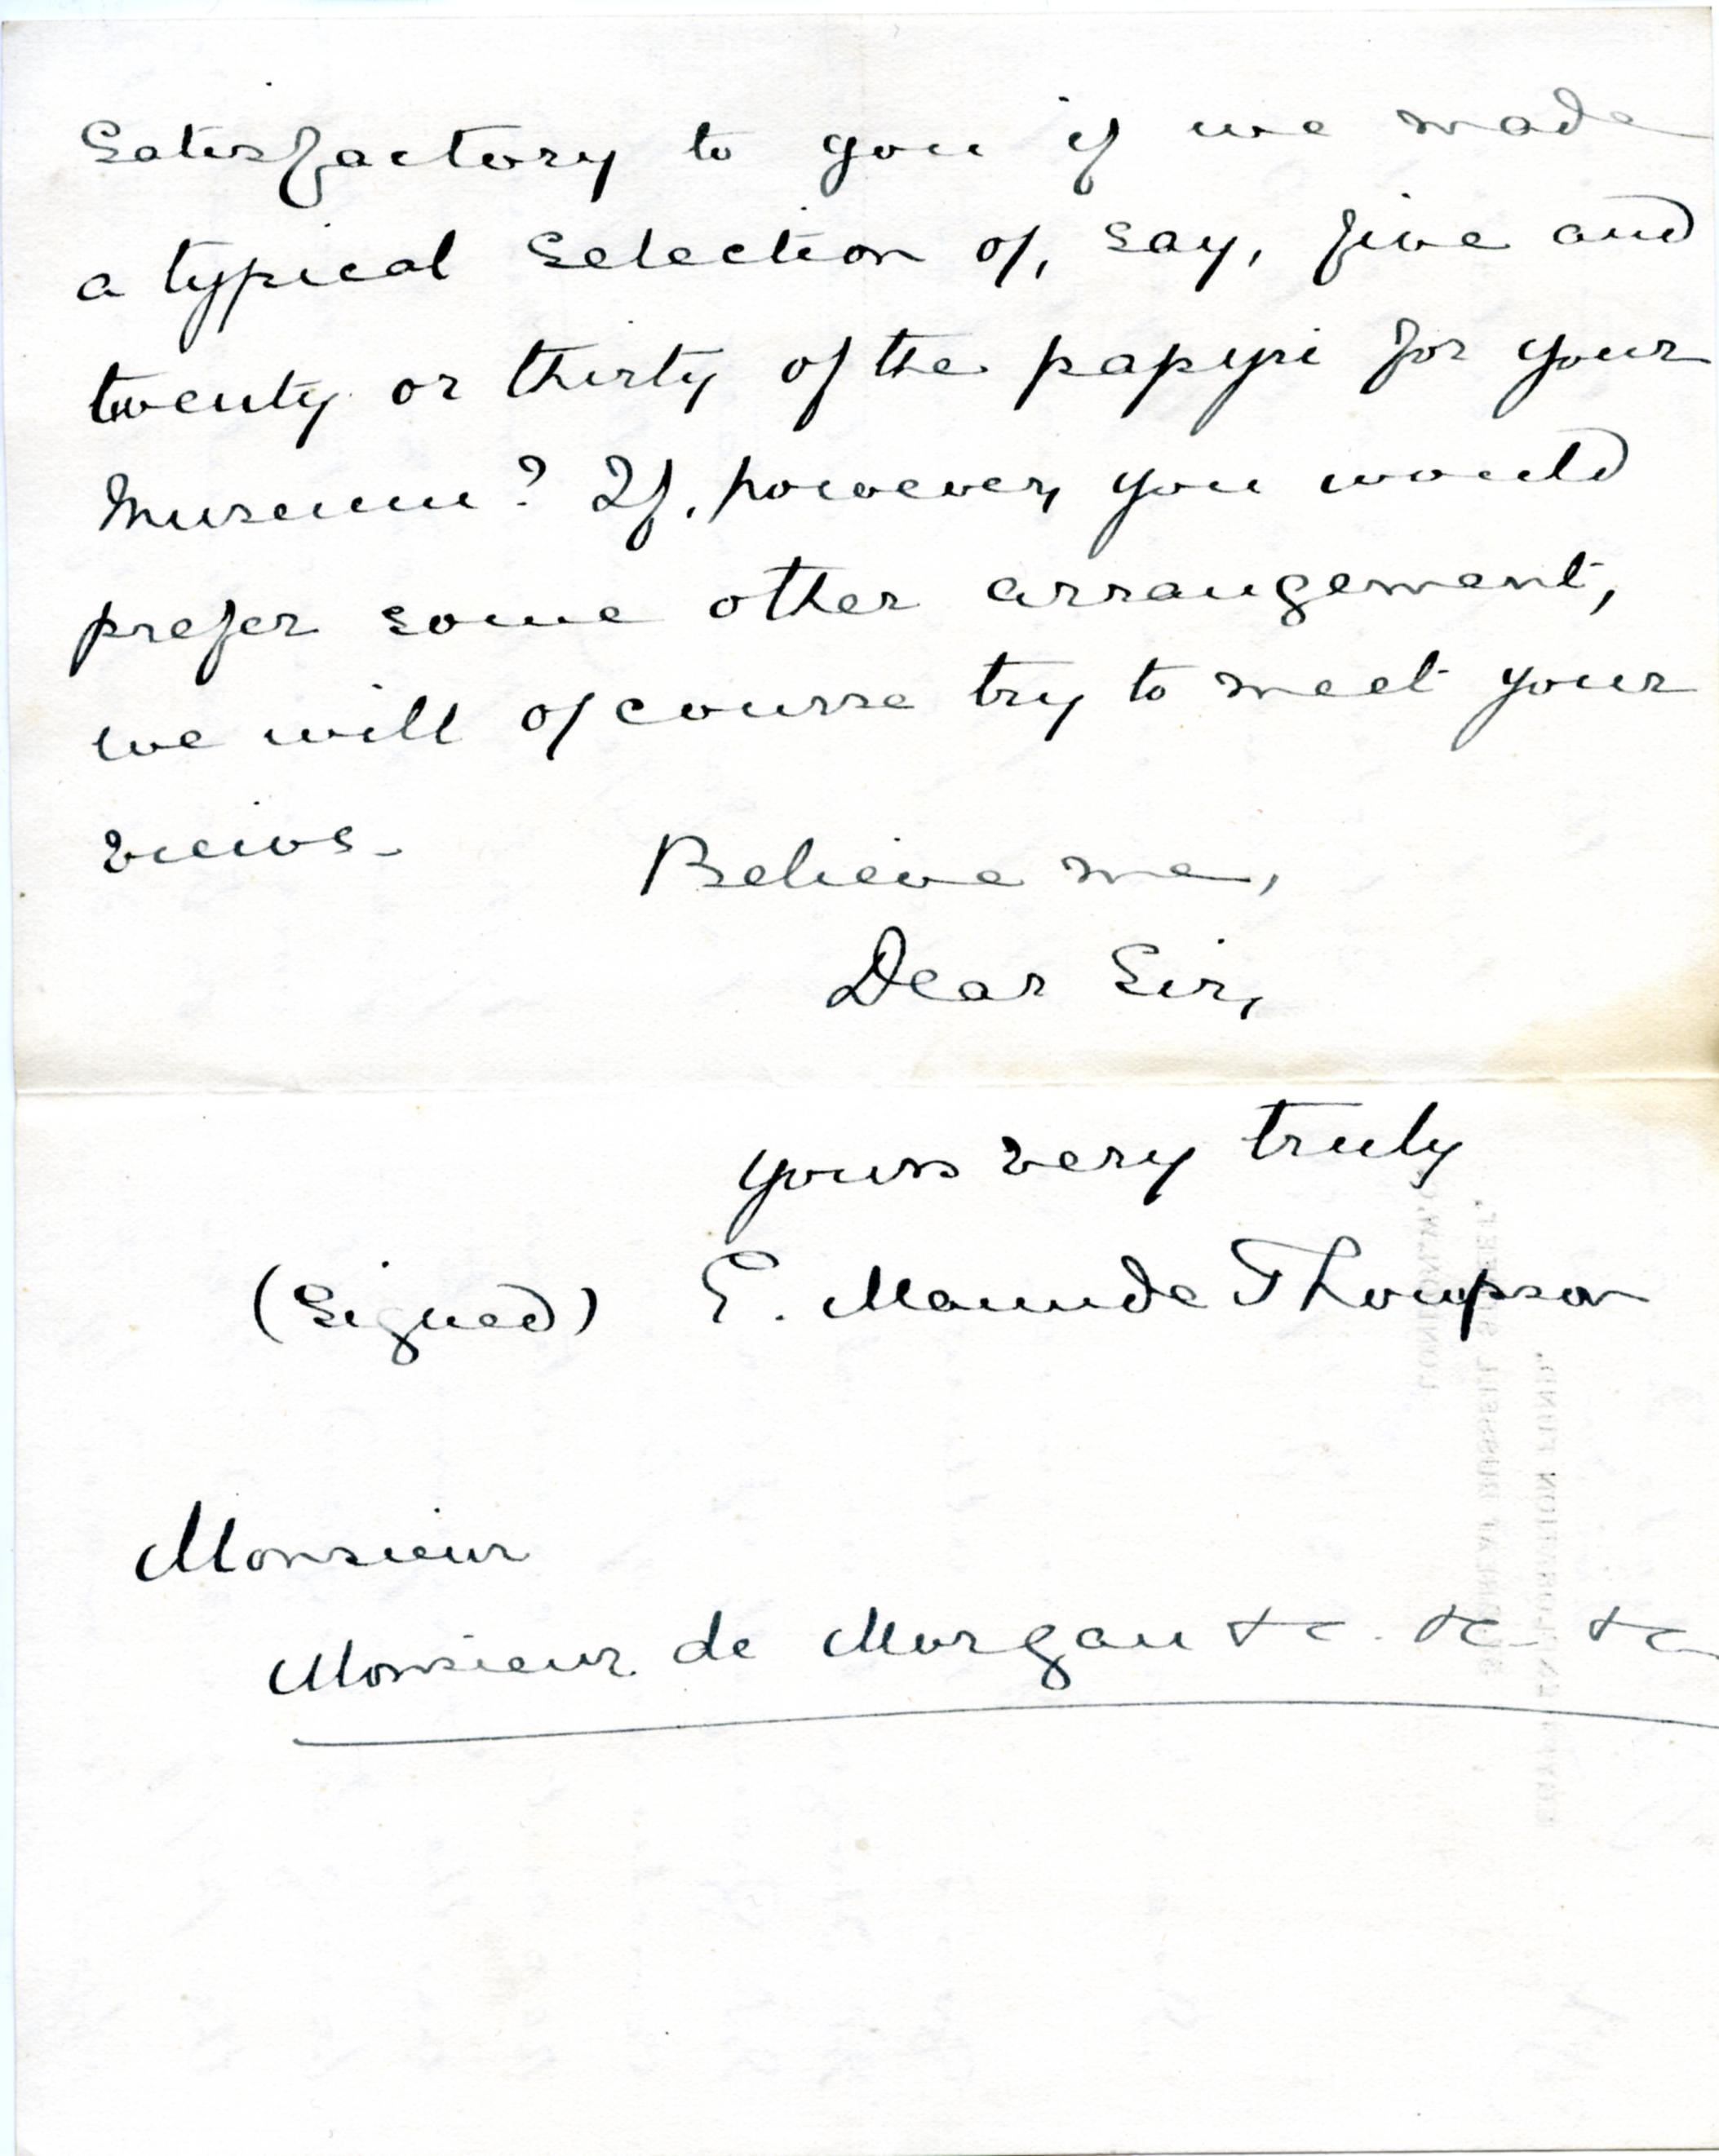 Satisfactory to you if we made
a typical Selection of, say, five and
twenty or thirty of the papyri for your
Museum? If, however, you would
prefer some other arrangement,
we will of course try to meet your
views.
Believe me,
Dear Sir,
yours very truly
(Signed) E. Maunde Thompson
Monsieur
Monsieur de Morgan &c. &c &c
EGYPT EXPLORATION FUND.
RUSSELL STREET,
LONDON, W.C.